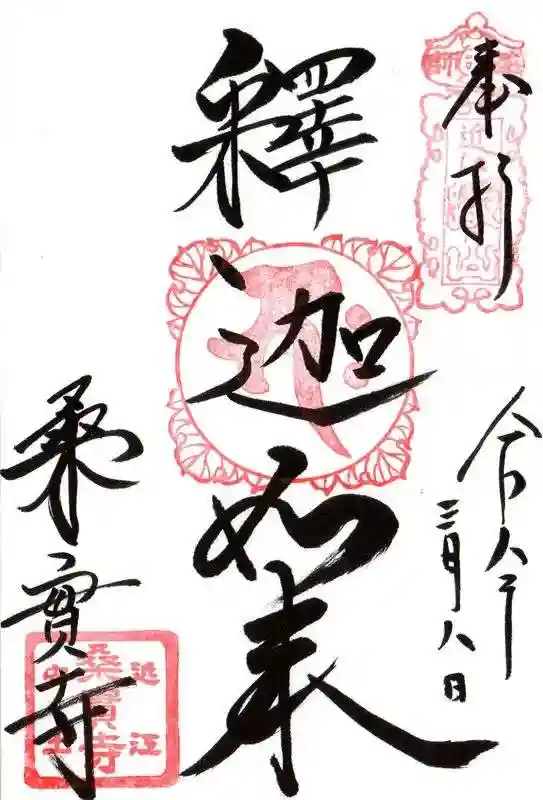 奉拝
釋迦如来
令和八年
三月八日
桑實寺
近江
桑實寺